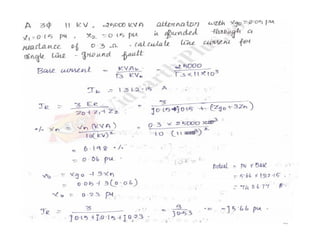 A 3Φ 11 KV, 25000 KVA alternator with Xgo = 0.05 pu
X1 = 0.15 pu, X2 = 0.15 pu is grounded through a
reactance of 0.3 Ω. calculate line current for
single line - ground fault
Base current = KVAb / √3 KVb = 25000 / √3 × 11×10³
IB = 1312.15 A
IR = 3 Ea / Z0+Z1+Z2 = 3 / j0.15+j0.15+(Zgo+3Zn)
% Xn = Xn(KVA) / 10(KV)² = 0.3 × 25000 / 10 (11)²
= 6.198 %
= 0.06 pu
X0 = Xgo + 3Xn
= 0.05 + 3(0.06)
X0 = 0.23 pu
= 5.66 × 1312.15
IR = 3 / j0.15+j0.15+j0.23 = 3 / j0.53 = -j5.66 pu